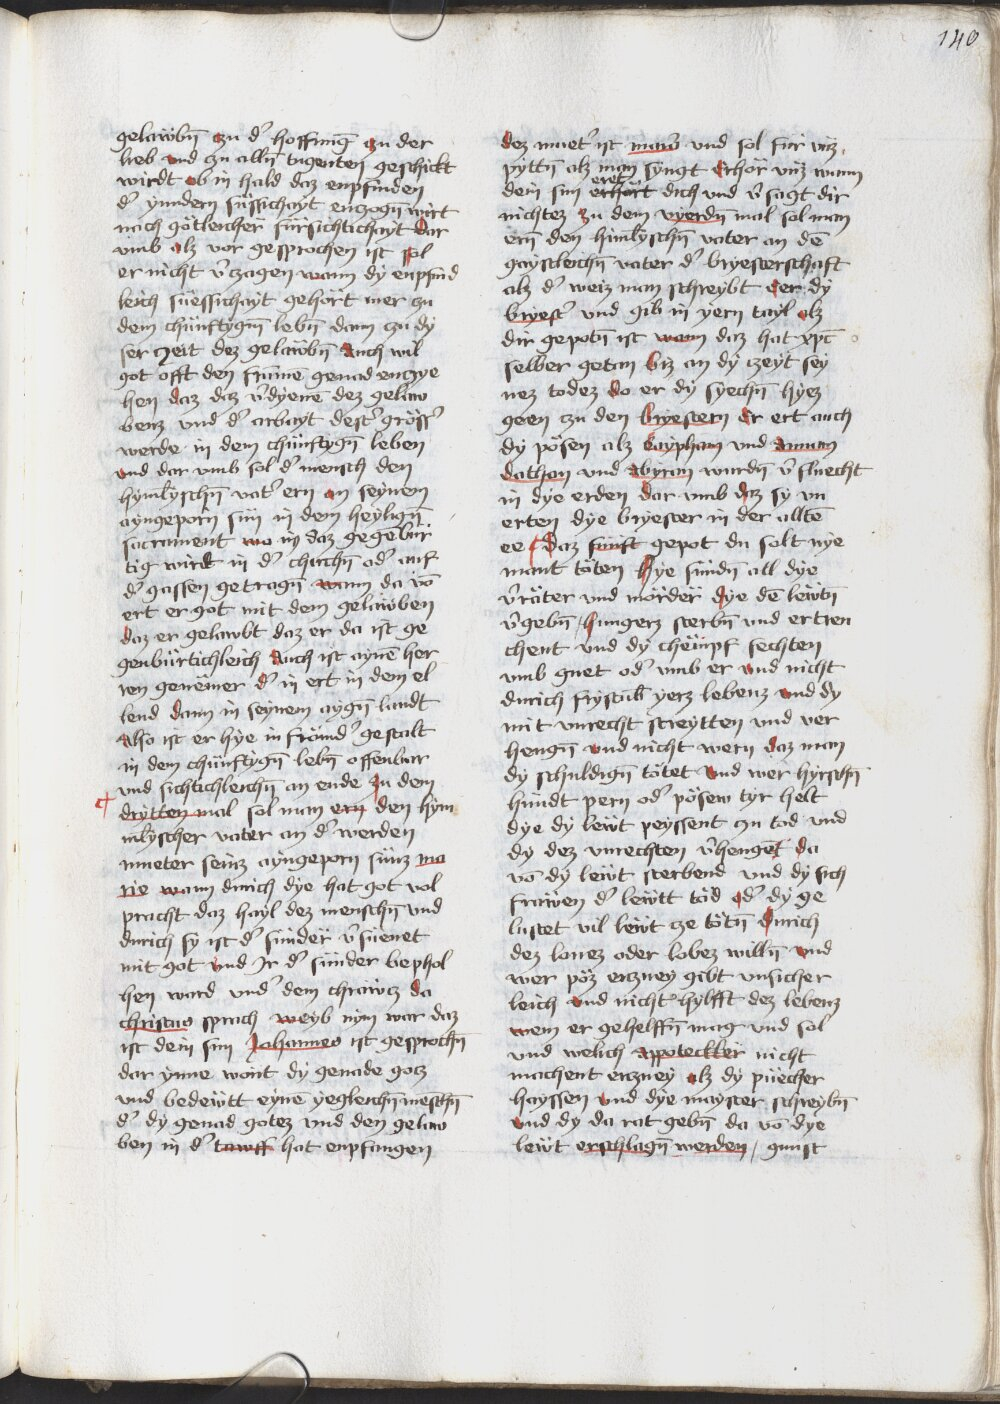 140
gelawbn̄ zu d' hoffnūg zu der
lieb vnd zu alln̄ tugenten geschickt
wirdt ob in hald daz enpfinden
d' ynndern süssichayt enczogn̄ wirt
nach götleicher fürsichtichayt dar
vmb alz vor gesprochen ist sol
er nicht v'czagen wann dy enpfind
leich süessichayt gehört mer zu
dem chünftygm̄ lebn̄ dann zu dy
ser zeit dez gelawbn̄ Auch wil
got offt den frümē genad enczye
hen daz daz v'dyene dez gelaw
benz vnd d' arbayt dest' gröss'
werde in dem chünftygn̄ leben
vnd dar vmb sol d' mensch den
hymlyschn̄ vat' ern an seynem
ayngeporn̄ sun in dem heylign̄
sacrament wo im daz gegebūr
tig wirdt in d' chirchn̄ od' auf
d' gassen getragn̄ wann da vō
ert er got mit dem gelawben
daz er gelawbt daz er da ist ge
genbürtichleich Auch ist aynē her
ren genēmer d' in ert in dem el
lend dann in seynem aygn̄ landt
Also ist er hye in främd' gestalt
in dem chünftygn̄ lebn̄ offenbar
vnd sichtichleichn̄ an ende Zu dem
drytten mal sol man ern den hym
mlyscher vater an d' werden
mueter seinz ayngeporn sunz ma
rie wann durich dye hat got vol
pracht daz hayl dez menschn̄ vnd
durich sy ist d' sünder v'süenet
mit got vnd Ir d' sünder bephol
hen ward vnd' dem chrawcz da
christus sprach weyb nym war daz
ist dein sun Johannes ist gesprochn̄
dar ynne wont dy genade gotz
vnd bedewtt eyne yegleichn̄ meschn̄
d' dy genad gotez vnd den gelaw
ben in d' tawff hat enpfangen
dez muet' ist maria vnd sol für vnz
pyttn̄ alz man syngt Erhör vnz wann
eret
dein sun erhört dich vnd v'sagt dir
nichtez Zu dem vyerdn̄ mal sol man
ern̄ den himlyschn̄ vater an dē
gaystleichn̄ vater d' bryesterschaft
alz d' weiz man schreybt Eer dy
bryest' vnd gib in yern tayl alz
dir gepotn̄ ist wann daz hat xp̄c
selber getan biz an dy czeyt sey
nez todez do er dy syechn̄ hyez
geen zu den bryestern Er ert auch
dy pösen alz Caypham vnd Annam
dathan vnd Abyran wurdn̄ v'sluecht
in dye erden dar vmb daz sy vn
erten dye bryester in der alltē
ee Daz fünft gepot du solt nye
mant töten Hye sündn̄ all dye
v'räter vnd mörder dye dē lewtn̄
v'gebn̄ / hungerz sterbn̄ vnd ertren
chent vnd dy chempf fechten
vmb guet od' vmb er vnd nicht
durich frystūb yerz lebenz vnd dy
mit vnrecht streytten vnd ver
hengn̄ vnd nicht wern daz man
dy schuldign̄ tötet vnd wer hyrschn̄
hundt pern od' pösew tyr helt
dye dy lewt peyssent zu tod vnd
dy dez vnrechten v'henget da
vō dy lewt sterbend vnd dy sich
fräwen d' lewtt töd od' dy ge
lustet vil lewt ze tötn̄ durich
dez lonez oder lobez willn̄ vnd
wer pöz erczney gibt vnsicher
leich vnd nicht hylfft dez lebenz
wem er gehelffn̄ mag vnd sol
vnd welich appotekker nicht
machent erczney alz dy püecher
hayssen vnd dye mayster schreybn̄
vnd dy da rat gebn̄ da vō dye
lewt erschlagn̄ werden / gunst